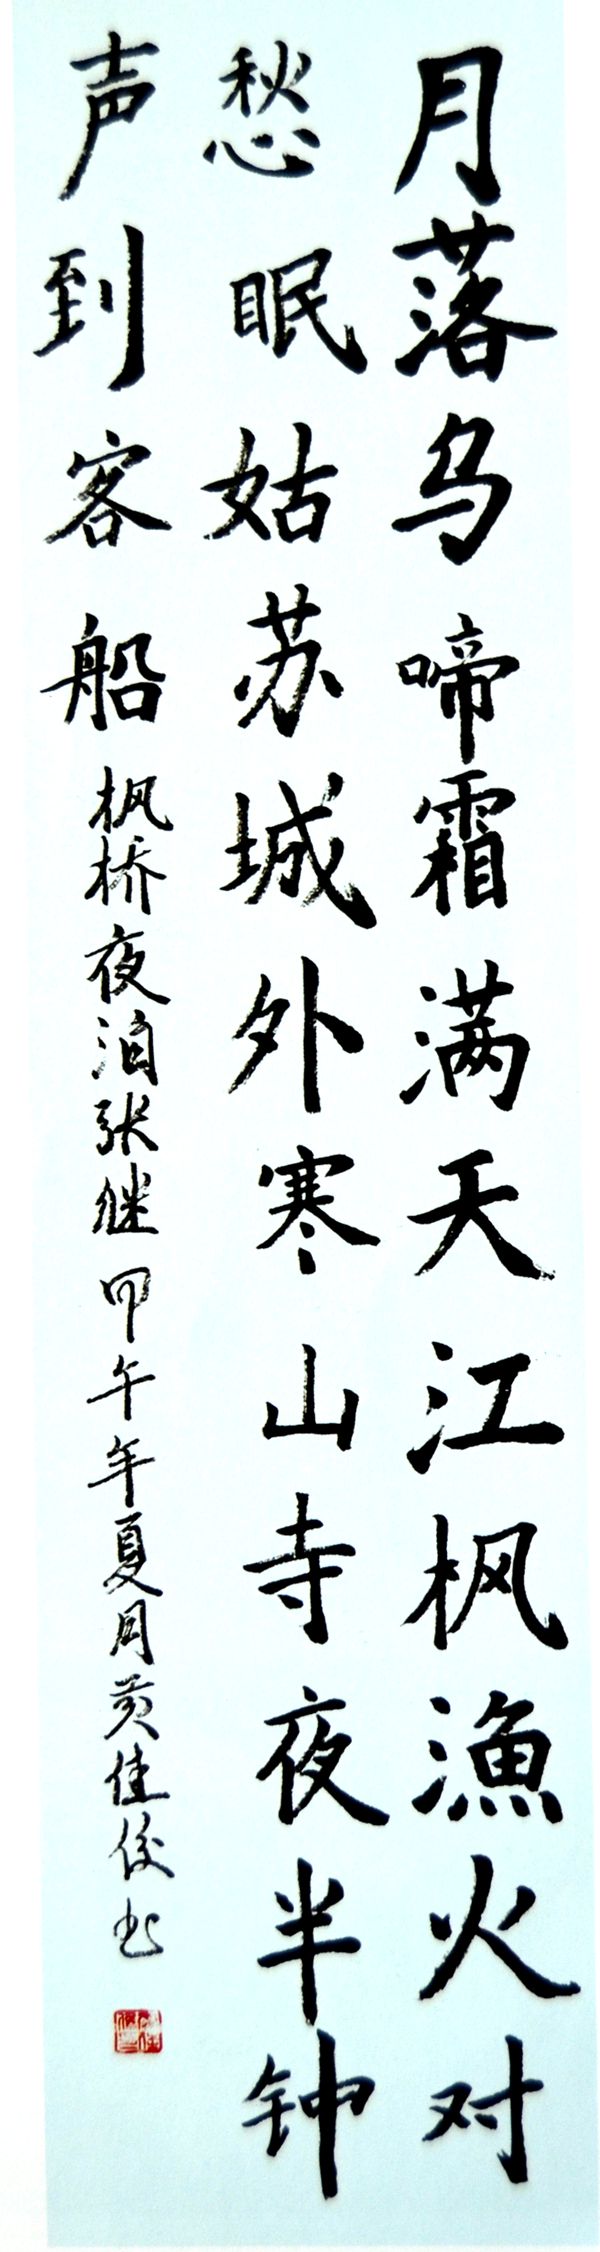 月落乌啼霜满天江枫漁火对
愁眠姑苏城外寒山寺夜半钟
声到客船
枫桥夜泊张继甲午年夏月黄佳俊书